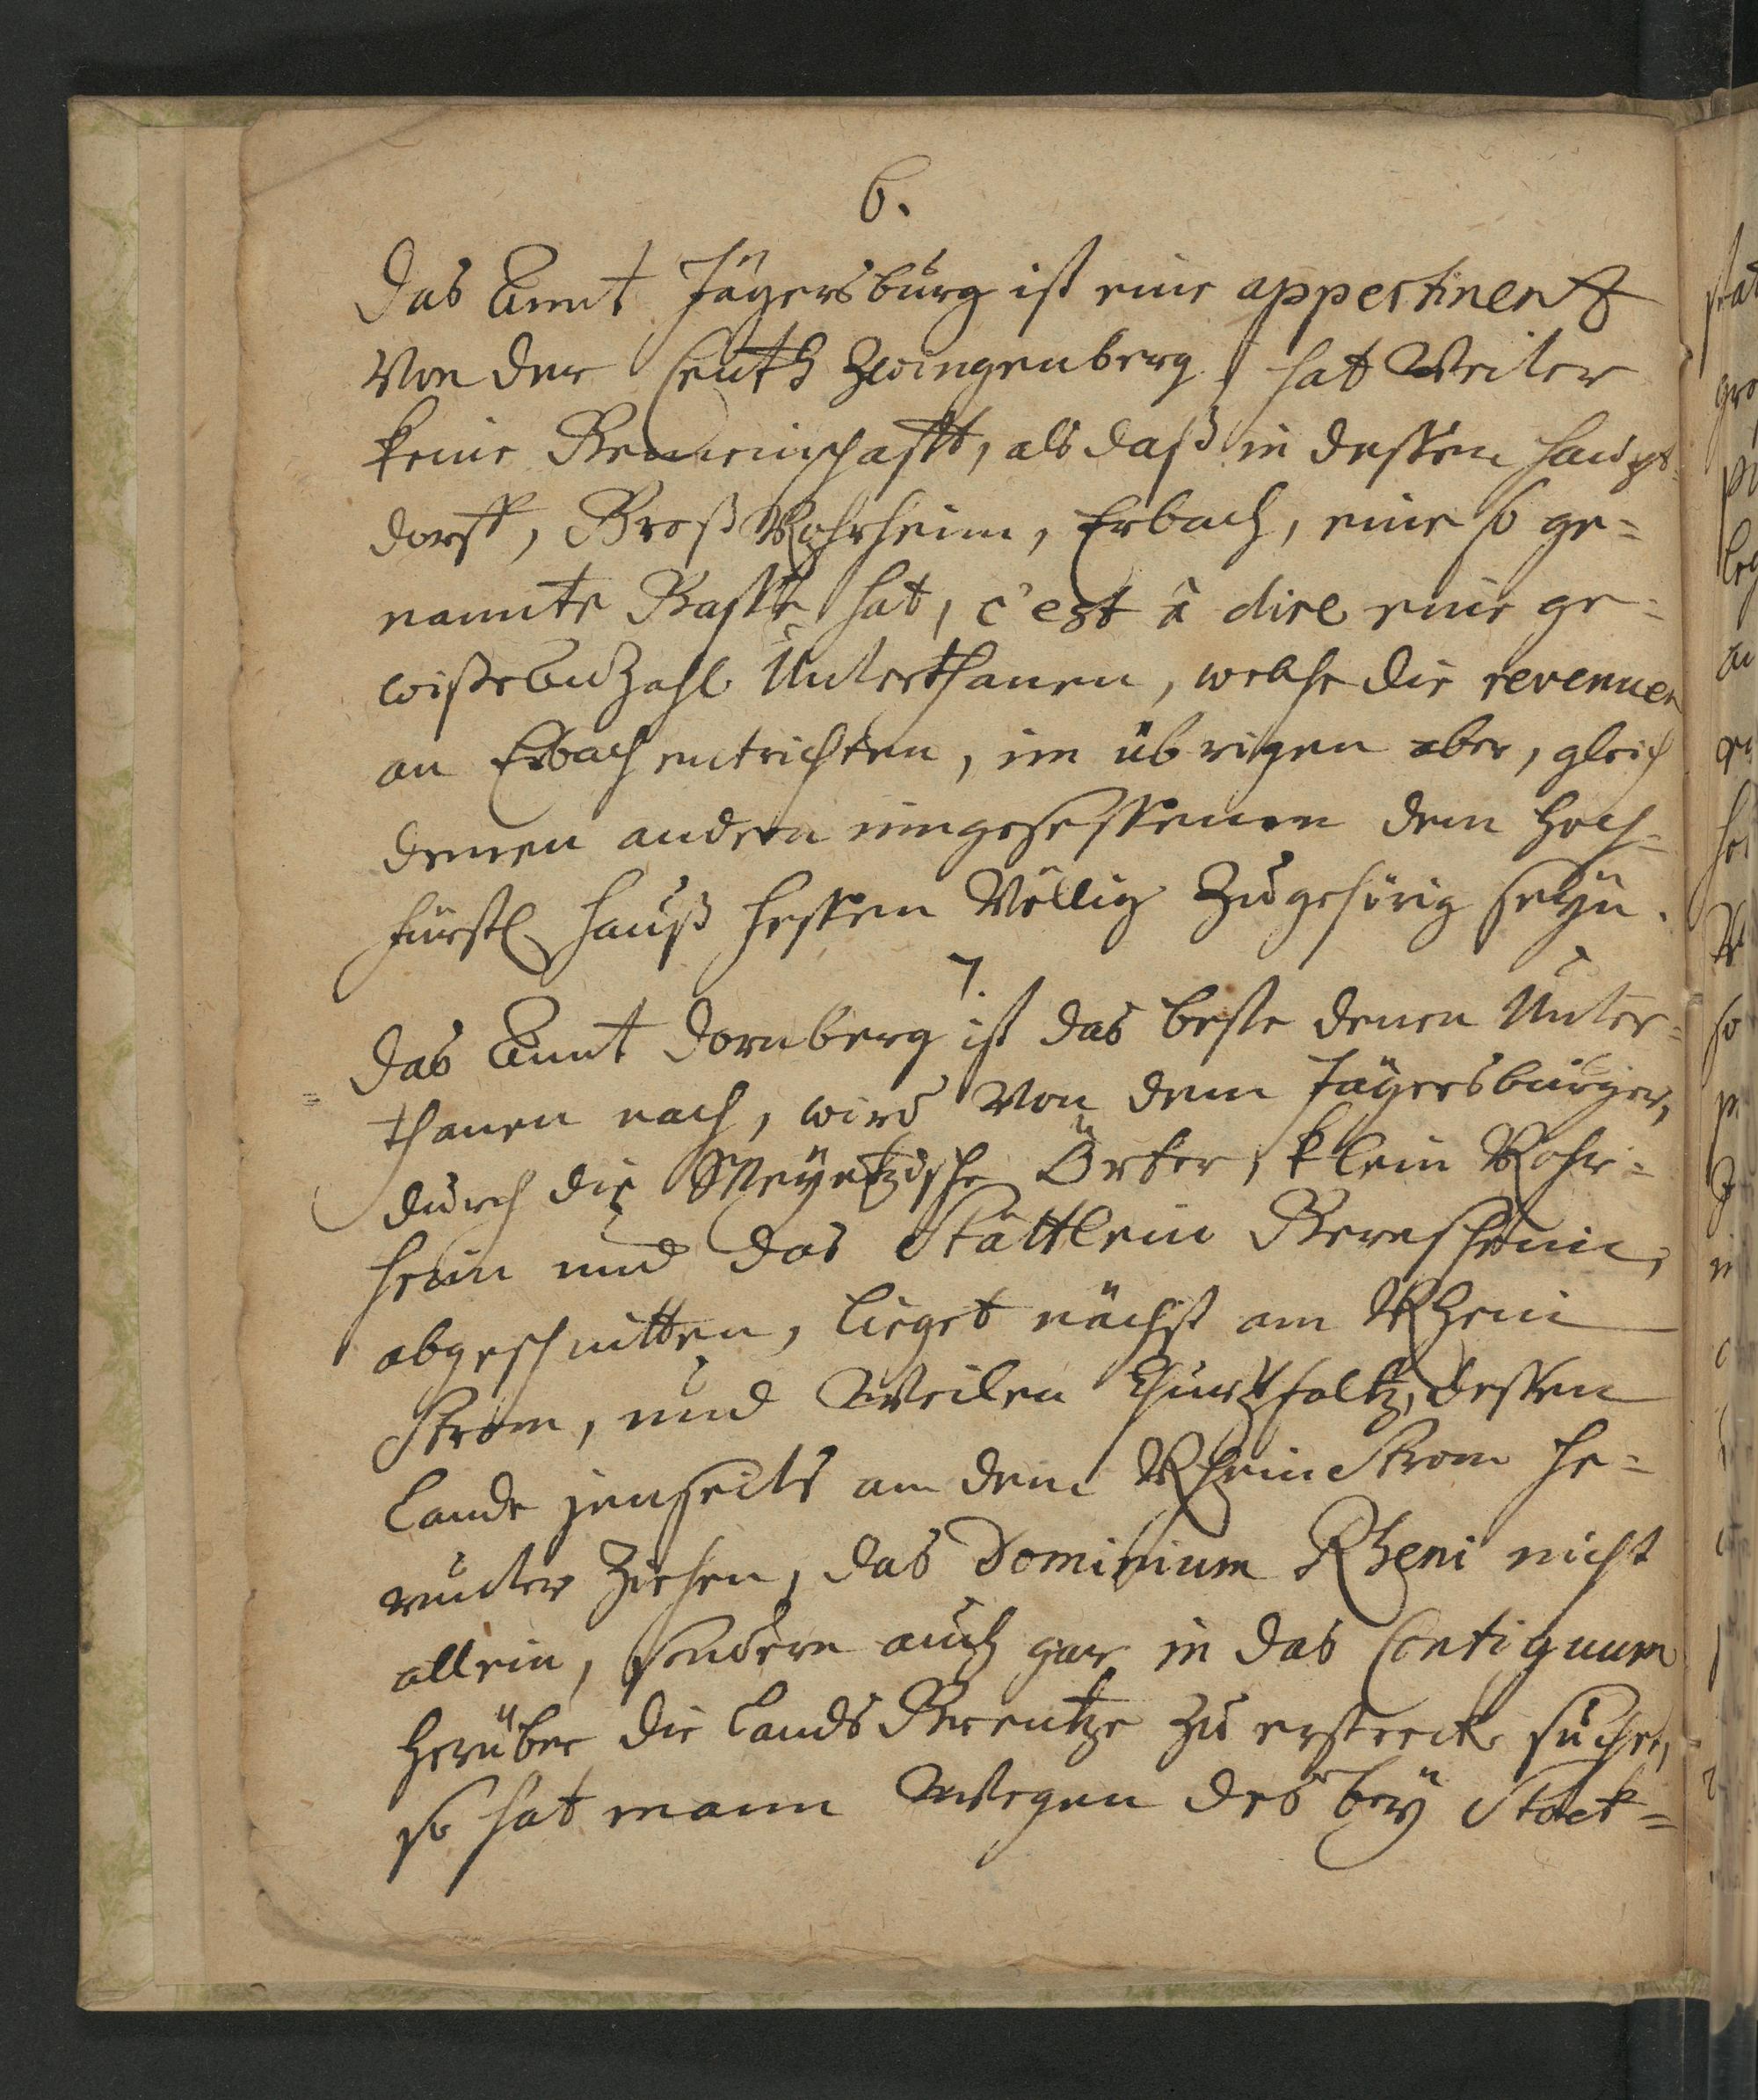 6.
Das Ammt Jägersburg ist eine appertinentz
Von der Centh Zwingenberg, hat Weiter
keine Gemeinschafft, als daß in dessen haupt-
dorff, Groß Rohrheim, Erbach, eine so ge=
nannte Gasse hat, c'est à dire eine ge=
wiße Anzahl Unterthanen, welche die revenuen
an Erbach entrichten, im übrigen aber, gleich
denen andern eingesessenen dem Hoch=
fürstl. Hauß Hessen Völlig Zugehörig seyn.
7.
Das Ammt Dornberg ist das beste denen Unter=
thanen nach, wird Von dem Jägersburger,
durch die Meyntzische Örter, klein Rohr=
heim und das Stättlein Gernsheim,
abgeschnitten, lieget nächst am Rhein
Strom, und Weilen Churpfaltz, dessen
Lande jenseits an dem Rhein Strom he=
runter Ziehen, das Dominium Rheni nicht
allein, sondern auch gar in das Contiguum
herüber die Lands Grentze zu erstrecke suchet,
so hat mann Wegen des bey Stock=